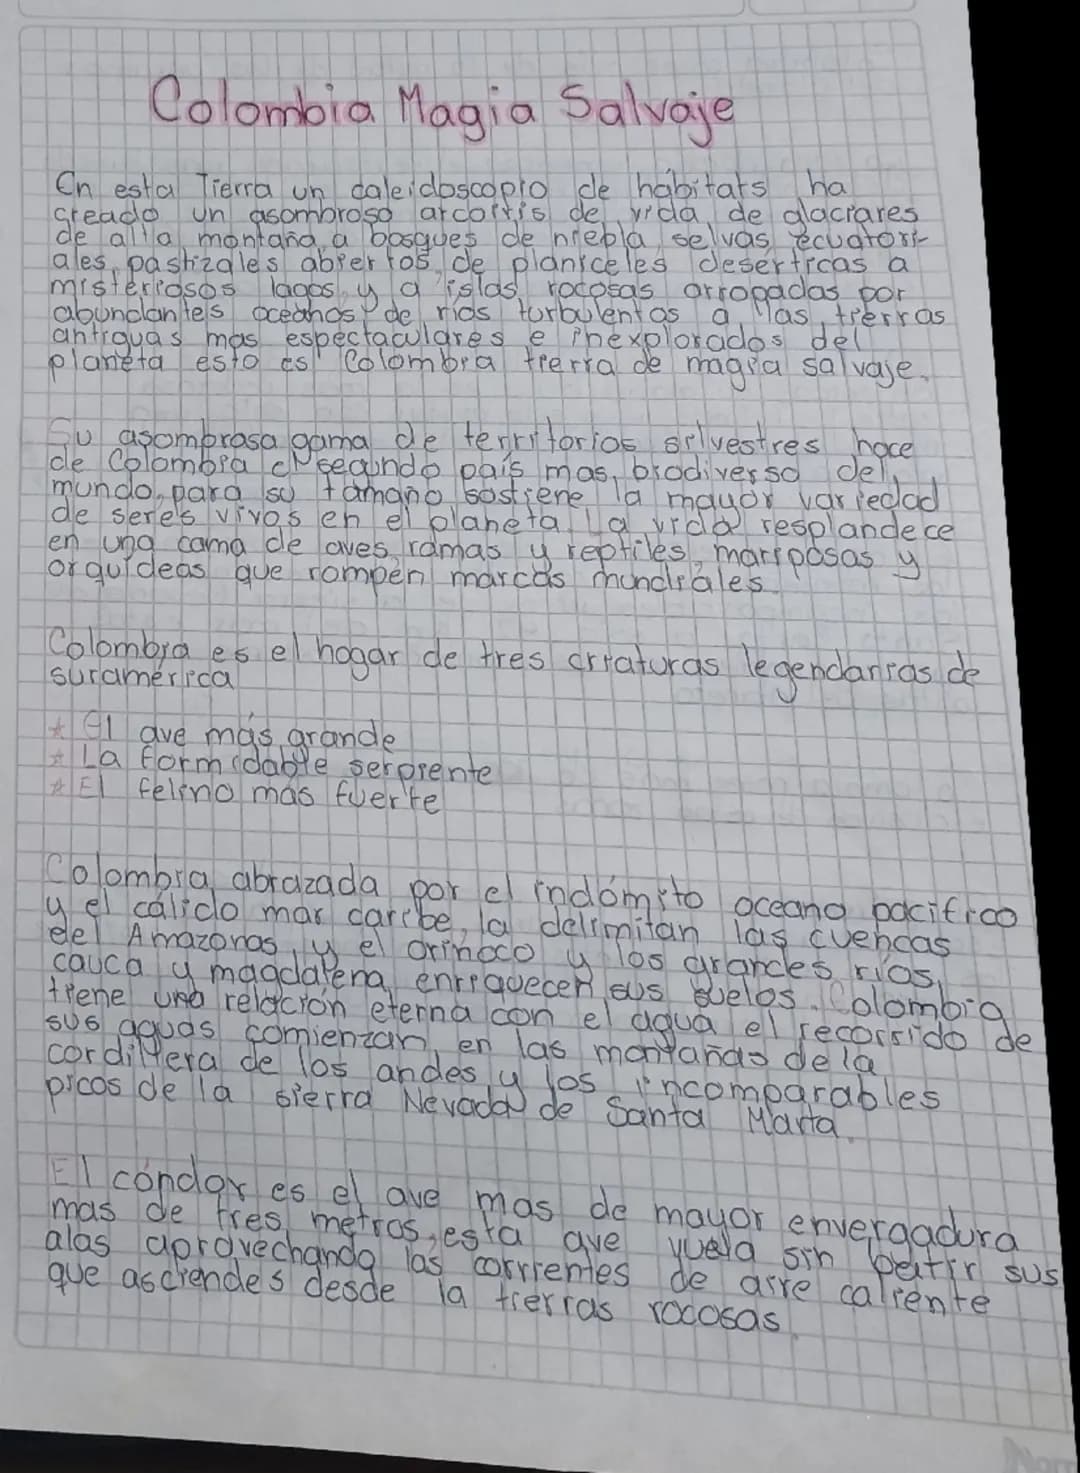 Colombia Magia Salvaje
En esta Tierra un caleidoscopio de hábitats ha
creado un asombroso arcoitis de vida, de glaciares
de alta montaña, a bosques de niebla, selvas ecuatori-
ales, pastizales abiertos, de planiceles deserticas a
misteriosos lagos y a islas rocosas arropadas por
abundantes oceanos de rios turbulentos a las tierras
antiguas mas espectaculares e inexplorados del
planeta esto es Colombia tierra de magia salvaje.
Su asombrosa gama de territorios silvestres hace
de Colombia el segundo país mas biodiverso del
mundo, para su tamaño sostiene la mayor variedad
de seres vivos en el planeta. La vida resplandece
en una cama de aves, ramas y reptiles, mariposas y
orquideas que rompen marcas mundiales.
Colombia es el hogar de tres criaturas legendarias de
suramérica
* El ave más grande
* La formidable serpiente
* El felino más fuerte
Colombia, abrazada por el indómito oceano pacifico
y el cálido mar caribe, la delimitán las cuencas
del Amazonas y el orinoco y los grandes rios,
cauca y magdalena enriquecen sus suelos. Colombia
tiene una relación eterna con el agua el recorrido de
sus aguas comienzan en las montañas de la
cordillera de los andes y los incomparables
picos de la sierra Nevada de Santa Marta.
El cóndor es el ave mas de mayor envergadura
mas de tres metros, esta ave vuela sin batir sus
alas aprovechando las corrientes de aire caliente
que asciendes desde la tierras rocosas.